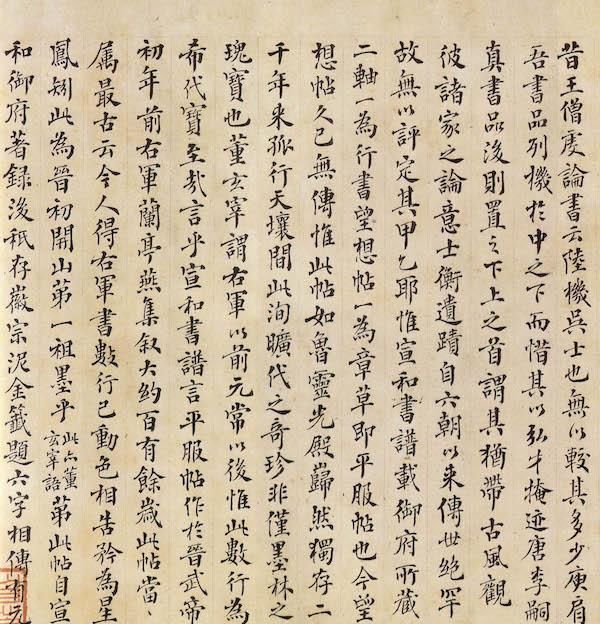 昔王僧虔論書云陸機吳士也無以較其多少庾肩
吾書品列機於中之下而惜其以弘才掩迹唐李嗣
真書品後則置之下上之首謂其猶帶古風觀
彼諸家之論意士衡遺蹟自六朝以來傳世絕罕
故無以評定其甲乙耶惟宣和書譜載御府所藏
二軸一為行書望想帖一為章草即平服帖也今望
想帖久已無傳惟此帖如魯靈光殿巋然獨存二
千年來孤行天壤間此洵曠代之奇珍非僅墨林之
瑰寶也董玄宰謂右軍以前元常以後惟此數行為
希代寶至哉言乎宣和書譜言平服帖作於晉武帝
初年前右軍蘭亭燕集敘大約百有餘歲此帖當〻
属最古云今人得右軍書數行已動色相告矜為星
鳳矧此為晉初開山苐一祖墨乎此亦董玄宰語苐此帖自宣
和御府著錄後祇存徽宗泥金籤題六字相傳有元